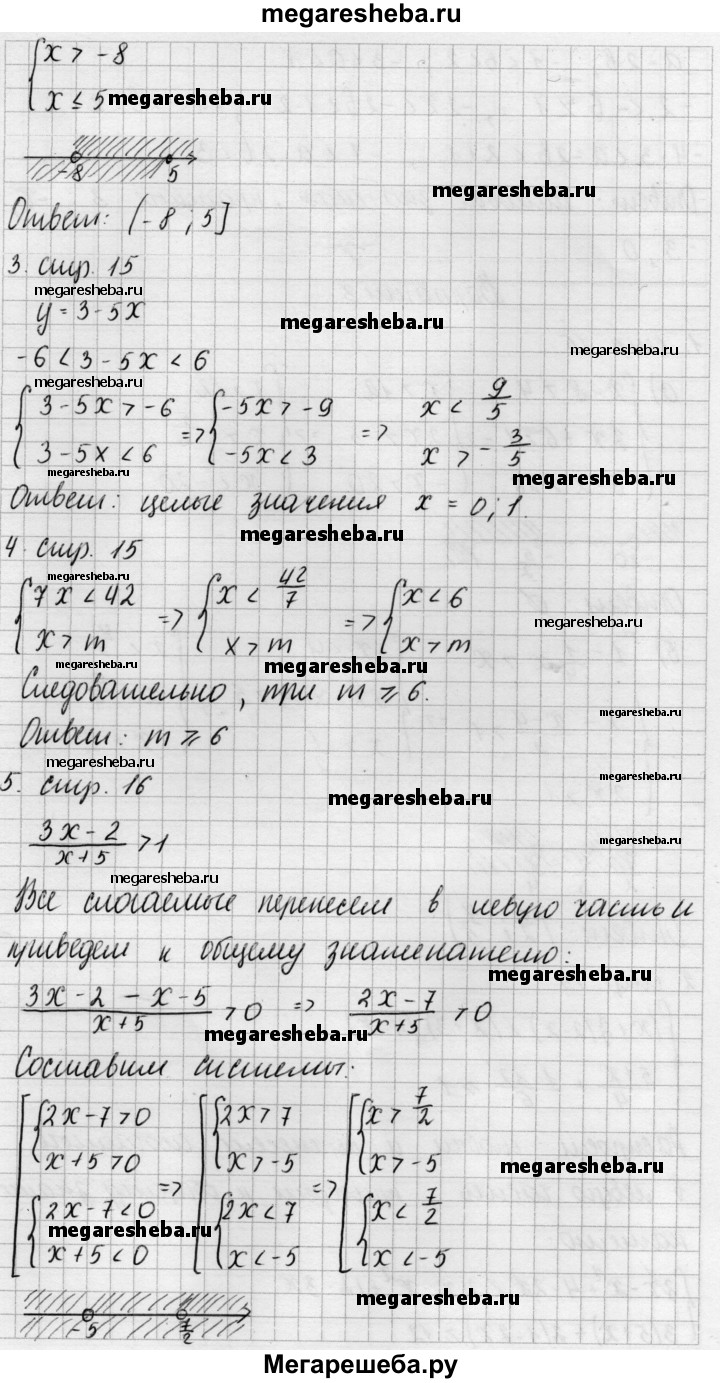 megaresheba.ru
{ x > -8
{ x ≤ 5 megaresheba.ru
-8 5
megaresheba.ru
Ответ: (-8 ; 5]
3. стр. 15
megaresheba.ru
y = 3 - 5x megaresheba.ru
-6 < 3 - 5x < 6 megaresheba.ru
megaresheba.ru
{ 3 - 5x > -6 => { -5x > -9 => x < 9/5
{ 3 - 5x < 6 { -5x < 3 x > -3/5
megaresheba.ru megaresheba.ru
Ответ: целые значения x = 0; 1.
4. стр. 15 megaresheba.ru
megaresheba.ru
{ 7x < 42 => { x < 42/7 => { x < 6
{ x > m { x > m { x > m
megaresheba.ru
megaresheba.ru megaresheba.ru
Следовательно, при m ⩾ 6.
megaresheba.ru
Ответ: m ⩾ 6
megaresheba.ru
5. стр. 16 megaresheba.ru
megaresheba.ru
(3x - 2)/(x + 5) > 1 megaresheba.ru
megaresheba.ru
Все слогаемые перенесем в левую часть и
приведем к общему знаменателю:
megaresheba.ru
(3x - 2 - x - 5)/(x + 5) > 0 => (2x - 7)/(x + 5) > 0
megaresheba.ru
Составим системы:
[ { 2x - 7 > 0 [ { 2x > 7 [ { x > 7/2
{ x + 5 > 0 => { x > -5 => { x > -5 megaresheba.ru
{ 2x - 7 < 0 { 2x < 7 { x < 7/2
megaresheba.ru
{ x + 5 < 0 { x < -5 { x < -5
megaresheba.ru
-5 7/2
Мегарешеба.ру